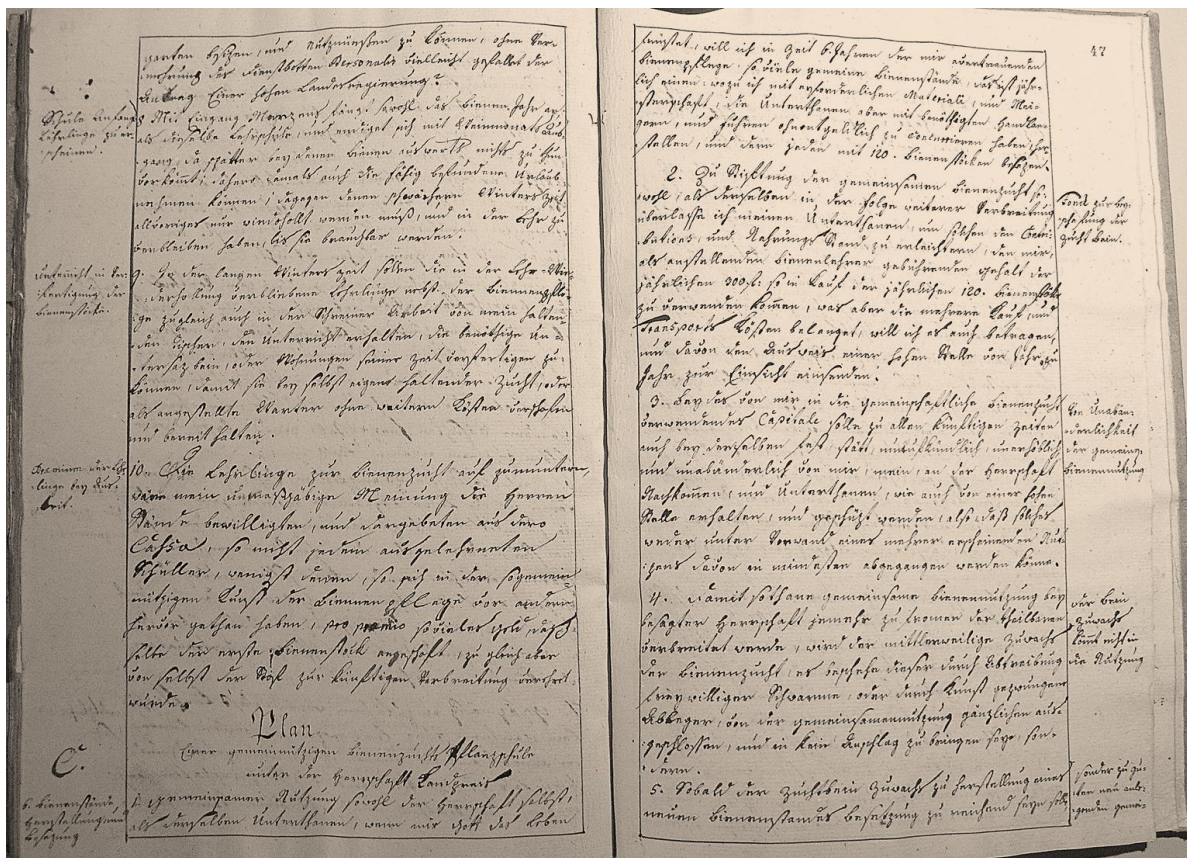 garten besizen, und nutznießen zu können, ohne Ver-
mehrung des Dienstbotten Personalis vielleicht gefallet der
Antrag Einer hohen Landesregierung?
Schule Anfang
Lehrlinge zu er-
scheinen.
8. Mit Eingang Merzens fangt sowohl das Bienen Jahr an,
als dieselbe Lehrschule, und endiget sich mit Weinmonats Aus-
gang, da spätter bey denen Bienen auswerts nichts zu thun
vorkömt, dahero damals auch die fähig befundene Urlaub
nehmen können, dagegen denen schwächern Winters Zeit
alldorriges nur wiederhollt werden muß, und in der Lehr zu
verbleiben haben, bis sie brauchbar werden.
Unterricht in Ver-
fertigung der
Bienenstöcke.
9. In der langen Winters Zeit sollen die in der Lehr-Wie-
derhollung verbliebene Lehrlinge nebst der Biennenpfle-
ge zugleich auch in der Schreiner Arbeit von mein halten-
den Tischler, den Unterricht erhalten, die benöthigte Un-
tersaz bein, oder Wohnungen seiner Zeit verfertigen zu
können, damit sie bey selbst eigens haltender Zucht, oder
als angestellte Warter ohne weitern Kösten verschafen
und bereit halten.
10. Die Lehrlinge zur Bienenzucht auf zumuntern,
wäre mein unmaßgäbige Meinung die Herren
Stände bewilligten, und dargebeten aus dero
Cassa, so nicht jedem ausgelehrneten
Schüller, wenigst denen, so sich in der sogemein
nützigen Kunst der Biennen pflege vor andern
hervor gethan haben, pro premio sovieles Geld, daß
selbe der erste Bienenstock angeschaft, zu gleich aber
von selbst der Stof zur künftigen Verbreitung verehrt
wurde.
Plan
Einer gemeinnützigen Bienenzuchts Pflanzschule
unter der Herrschaft Landpreis
C.
6. Bienenstände,
Herstellung und
Besezung
1. Gemeinsamer Nutzung sowohl der Herrschaft selbst,
als derselben Unterthanen, wenn mir Gott das Leben
47
fristet, will ich in Zeit 6. Jahren der mir anvertrauenden
Bienenpflege so viele gemeine Bienenstände, das ist jähr-
lich einen, wozu ich mit erforderlichen Materiali, und Mei-
sterschaft, die Unterthanen aber mit benöthigten Handlan-
gern, und Fuhren ohnentgeltlich zu concurrieren haben, her-
stellen, und deren jeden mit 120. Bienenstöcken besezen.
Fond zur Bey-
schafung der
Zucht Bein.
2. Zu Stiftung der gemeinsamen Bienenzucht so
wohl, als derselben in der Folge weiterer Verbreitung
überlasse ich meinen Unterthanen, um solchen den Contri-
butions, und Nahrungs Stand zu erleichtern, den mir,
als anstellenden Bienenlehrer gebührenden Gehalt der
jährlichen 300 fl: so in Kauf der jährlichen 120. Bienenstöke
zu verwenden kommen, was aber die mehrere Kauf, und
Transports Kösten belanget, will ich es auch betragen,
und davon den Ausweis einer hohen Stelle von Jahr zu
Jahr zur Einsicht einsenden.
Von Unabän-
derlichkeit
der gemeins.
Bienennutzung
3. Bey des von mir in die gemeinschaftliche Bienenzucht
verwendendes Capitale solle zu allen künftigen Zeiten
auch bey derselben fest, statt, unaufkündlich, unerhöblich
und unabänderlich von mir, mein, an der Herrschaft
Nachkommen, und Unterthanen, wie auch von einer hohen
Stelle erhalten, und geschüzt werden, also, daß solches
weder unter Vorwand eines mehrer erscheinenden Nu-
zens davon in mindesten abgegangen werden könne.
der Bein
Zuwachs
komt nicht in
die Nutzung
4. Damit sothane gemeinsame Bienennutzung bey
besagter Herrschaft jemehr zu fromen der theilbaren
verbreitet werde, wird der mittlerweilige Zuwachs
der Bienenzucht, es beschehe dieser durch Abtreibung
freywilliger Schwärme, oder durch Kunst gezwungene
Ableger, von der gemeinsamennutzung gänzlichen aus-
geschlossen, und in kein Anschlag zu bringen seye, son-
dern.
5. Sobald der Zuchtbein Zuwachs zu Herstellung eines
neuen Bienenstandes Besetzung zu reichend seyn solle